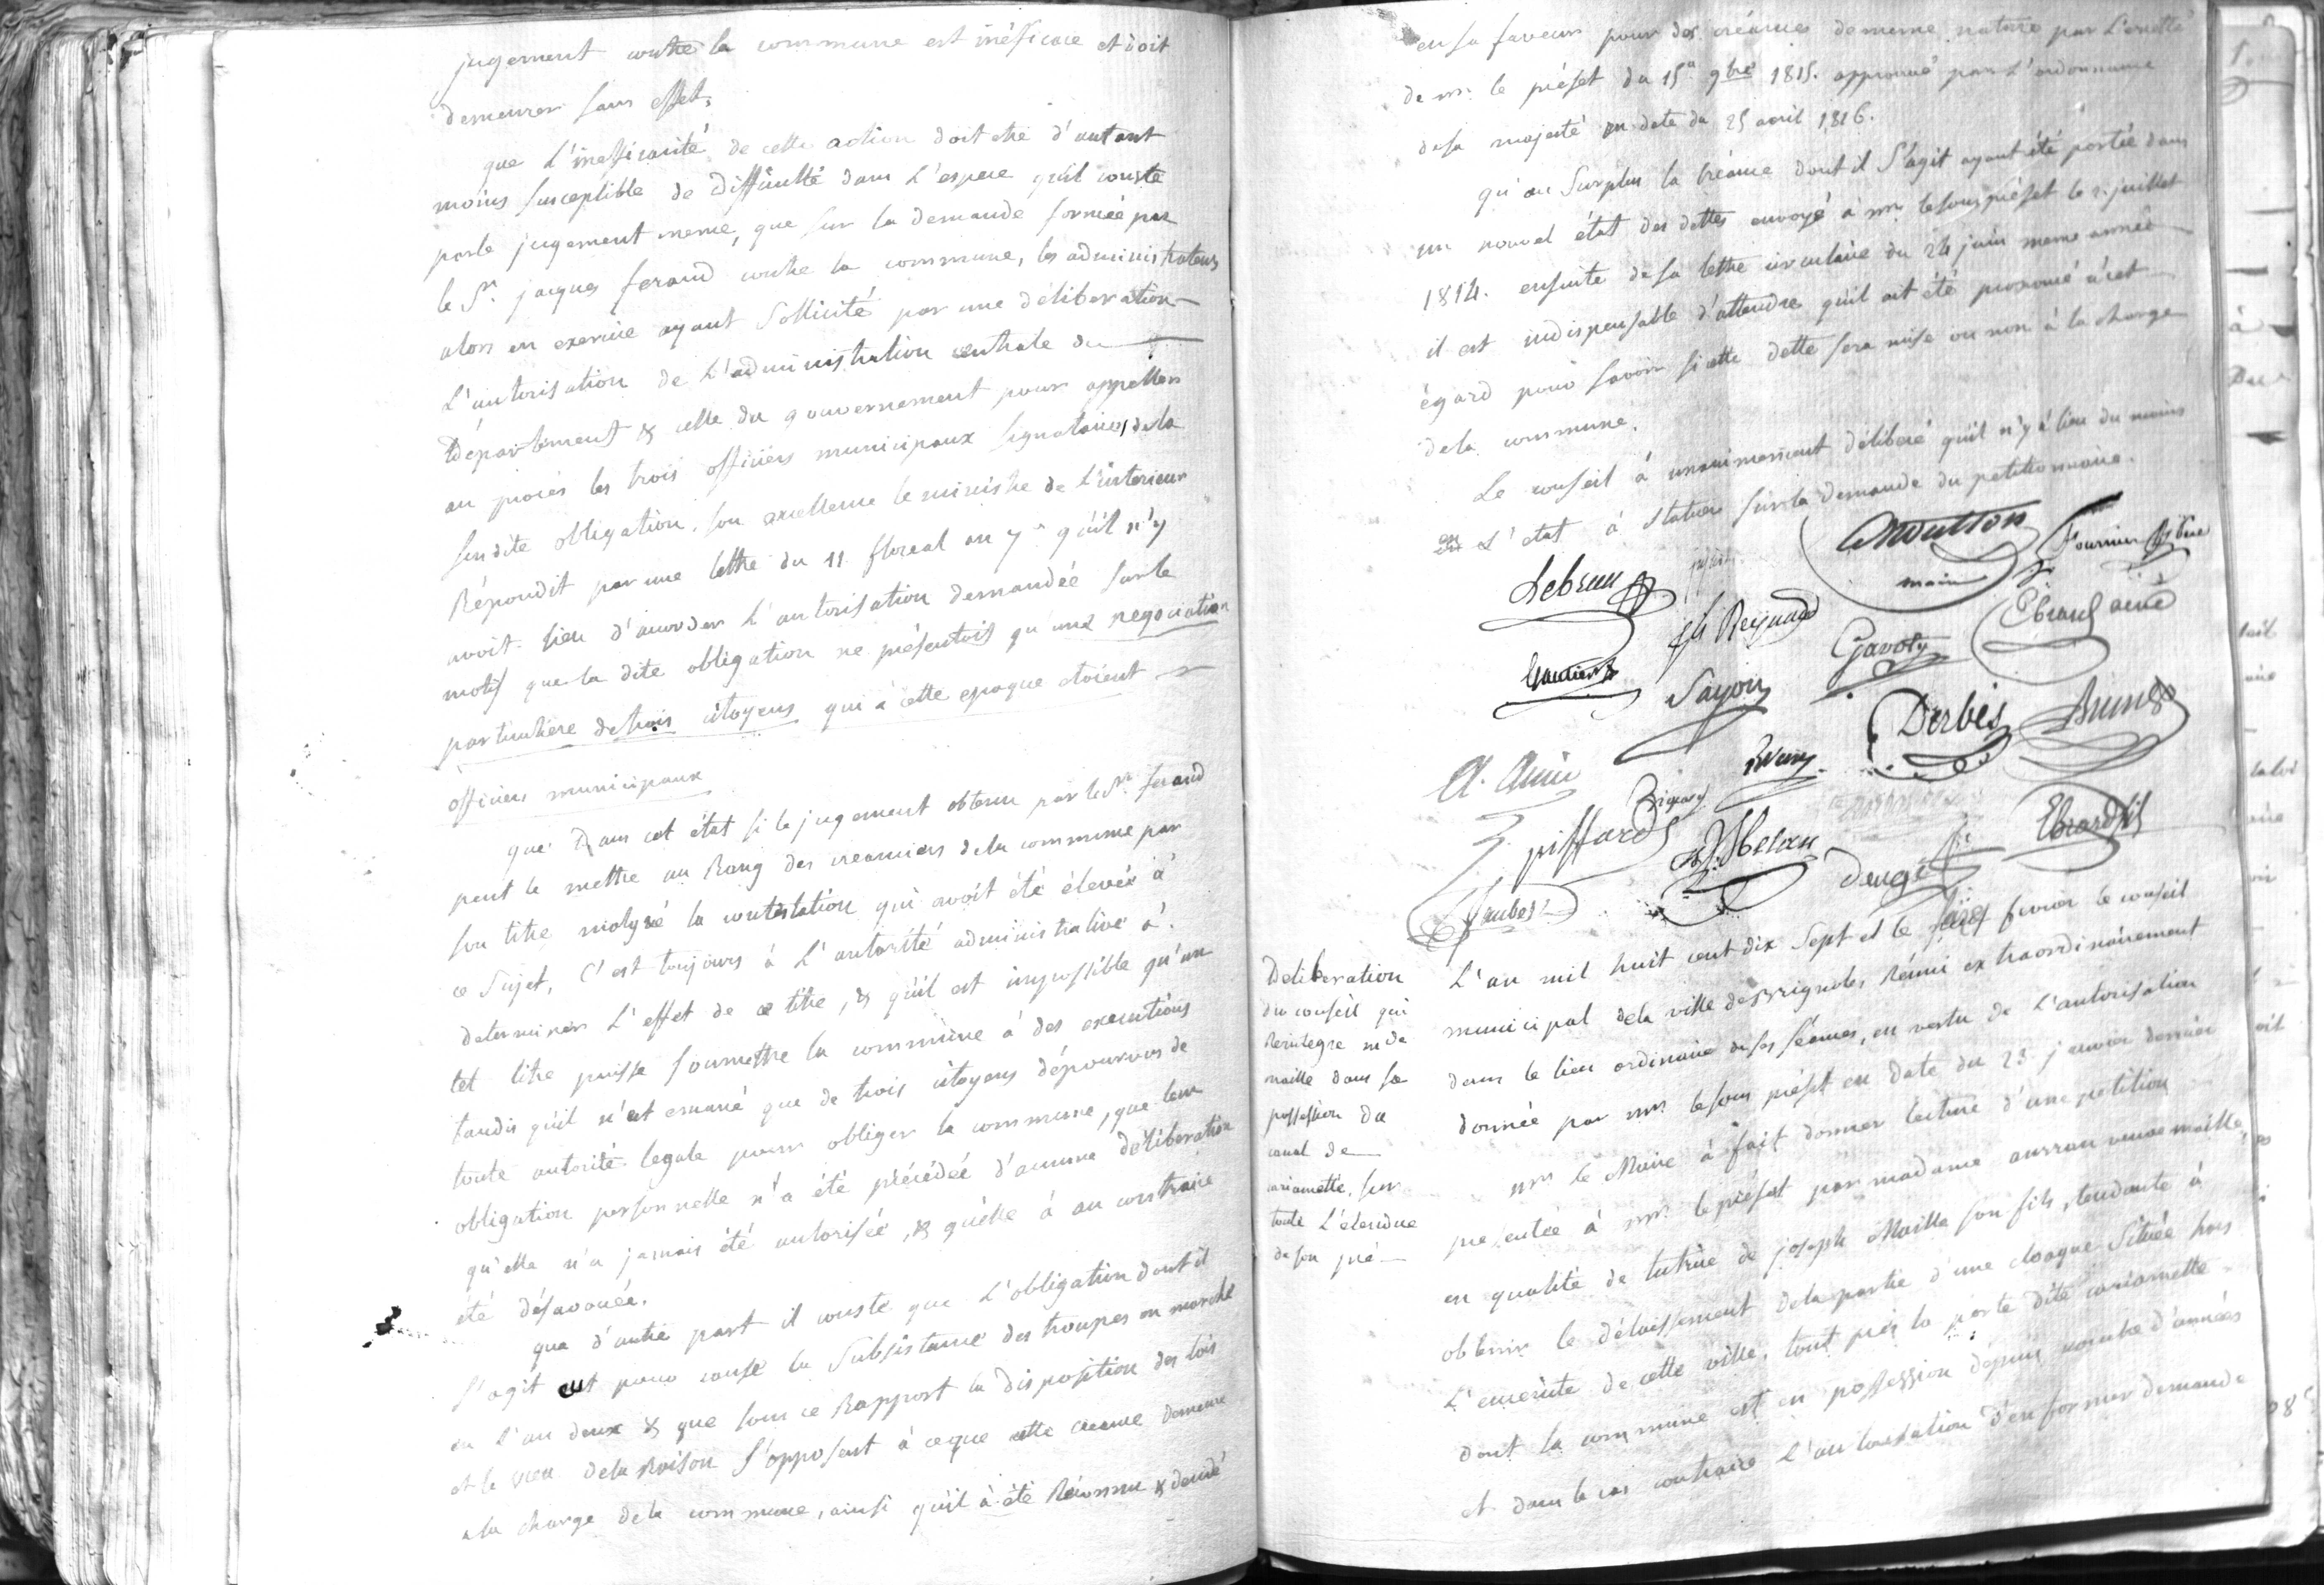 jugement contre la commune est inéficace et doit
demeurer sans effet,
que L'inefficacité de cette action doit etre d'autant
moins susceptible de difficulté dans L'espece qu'il conste
parle jugement meme, que sur la demande formée par
le Sr. jacques feraud contre la commune, les administrateurs
alors en exercice ayant Sollicité par une déliberation
L'autorisation de L'administration centrale du
Département & celle du gouvernement pour appeller
au procès les trois officiers municipaux signataires dela
susdite obligation, son excellence le ministre de L'interieur
Répondit par une lettre du 11 floreal an 7e qu'il n'y
avoit lieu d'accorder L'autorisation demandée surle
motif que la dite obligation ne présentoit qu'une negociation
particulière detrois citoyens qui à cette epoque étoient
officiers municipaux
que Dans cet état si le jugement obtenu par le Sr. feraud
peut le mettre au Rang des creanciers dela commune par
son titre malgré la contestation qui avoit été élevée à
ce Sujet, C'est toujours à L'autorité administrative à
determiner L'effet de ce titre, & qu'il est impossible qu'un
tel titre puisse soumettre la commune à des executions
tandis qu'il n'est emané que de trois citoyens dépourvus de
toute autorité legale pour obliger la commune, que leur
obligation personnelle n'a été précédée d'aucune déliberation
qu'elle n'a jamais été autorisée, & qu'elle à au contraire
été désavouée.
que d'autre part il conste que L'obligation dont il
s'agit eut pour cause la Subsistance des troupes en marche
en L'an deux & que sous ce Rapport la disposition des lois
et le vœu dela Raison s'opposent à ceque cette creance demeure
ala charge dela commune, ainsi qu'il à été Réconnu & decidé
en sa faveur pour des créances dememe nature par L'arretté
de mr. le préfet du 15 9bre 1815. approuvé par L'ordonnance
desa majesté en date du 25 avril 1816.
qu'au Surplus la Créance dont il S'agit ayant été portée dans
un nouvel état des dettes envoyé à mr. lesous préfet le 2. juillet
1814. ensuite desa lettre circulaire du 24 juin meme année
il est indispensable d'attendre qu'il ait été prononcé à cet
égard pour savoir si cette dette sera mise ou non à la charge
dela commune.
Le conseil à unanimement déliberé qu'il n'y à lieu du moins
en L'etat à statuer surla demande du petitionnaire.
Lebrun
maire
Fournier
Reynaud
Gavoty
Ebrard ainé
Gautier
Sayou
Derbès
Brunet
A. Amic
piffard
Ebrard fils
Jaubert
Deliberation
du conseil qui
Reintegre mde
maille dans sa
possession du
canal de
cariamette, sur
toute L'etendue
de son pré
L'an mil huit cent dix Sept et le seize fevrier le conseil
municipal dela ville debrignoles Réuni extraordinairement
dans le lieu ordinaire deses séances, en vertu de L'autorisation
donnée par mr. lesous préfet en date du 23 janvier dernier
mr. le Maire à fait donner lecture d'une petition
presentée à mr. le préfet par madame aurran veuve maille,
en qualité de tutrice de joseph Maille son fils, tendante à
obtenir le délaissement dela partie d'une cloaque Située hors
L'enceinte de cette ville, tout près la porte dite cariamette
dont la commune est en possession dépuis nombre d'années
et dans le cas contraire L'autorisation d'en former demande